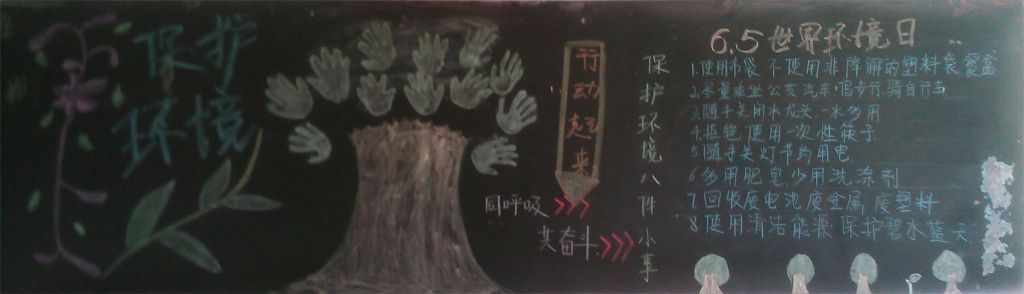 保护
环境
行动起来
同呼吸
共奋斗
保护环境八件小事
6.5世界环境日
1.使用布袋 不使用非降解的塑料袋餐盒
2.尽量乘坐公共汽车.
3.随手关闭水龙头 一水多用
4.拒绝使用一次性筷子
5随手关灯节约用电
6多用肥皂少用洗涤剂
7回收废电池废金属废塑料
8使用清洁能源 保护碧水蓝天